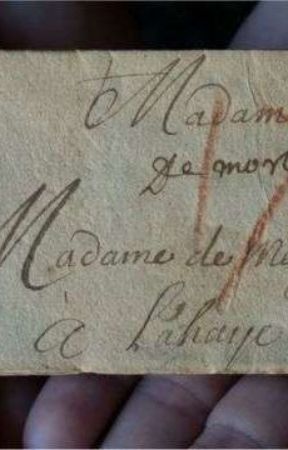 Madam
De mor
Madame de M
à Lahaye